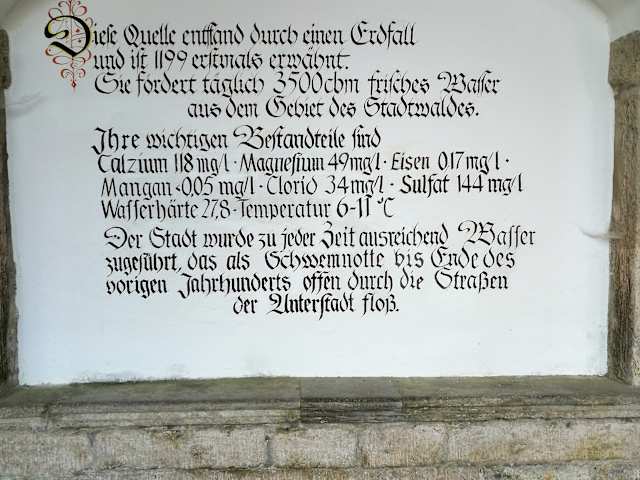 Diese Quelle entstand durch einen Erdfall
und ist 1199 erstmals erwähnt.
Sie fördert täglich 3500cbm frisches Wasser
aus dem Gebiet des Stadtwaldes.
Ihre wichtigen Bestandteile sind
Calzium 118 mg/l · Magnesium 49mg/l · Eisen 0.17mg/l ·
Mangan <0,05 mg/l · Clorid 34mg/l · Sulfat 144 mg/l
Wasserhärte 27,8 · Temperatur 6-11 °C
Der Stadt wurde zu jeder Zeit ausreichend Wasser
zugeführt, das als Schwemnotte bis Ende des
vorigen Jahrhunderts offen durch die Straßen
der Unterstadt floß.